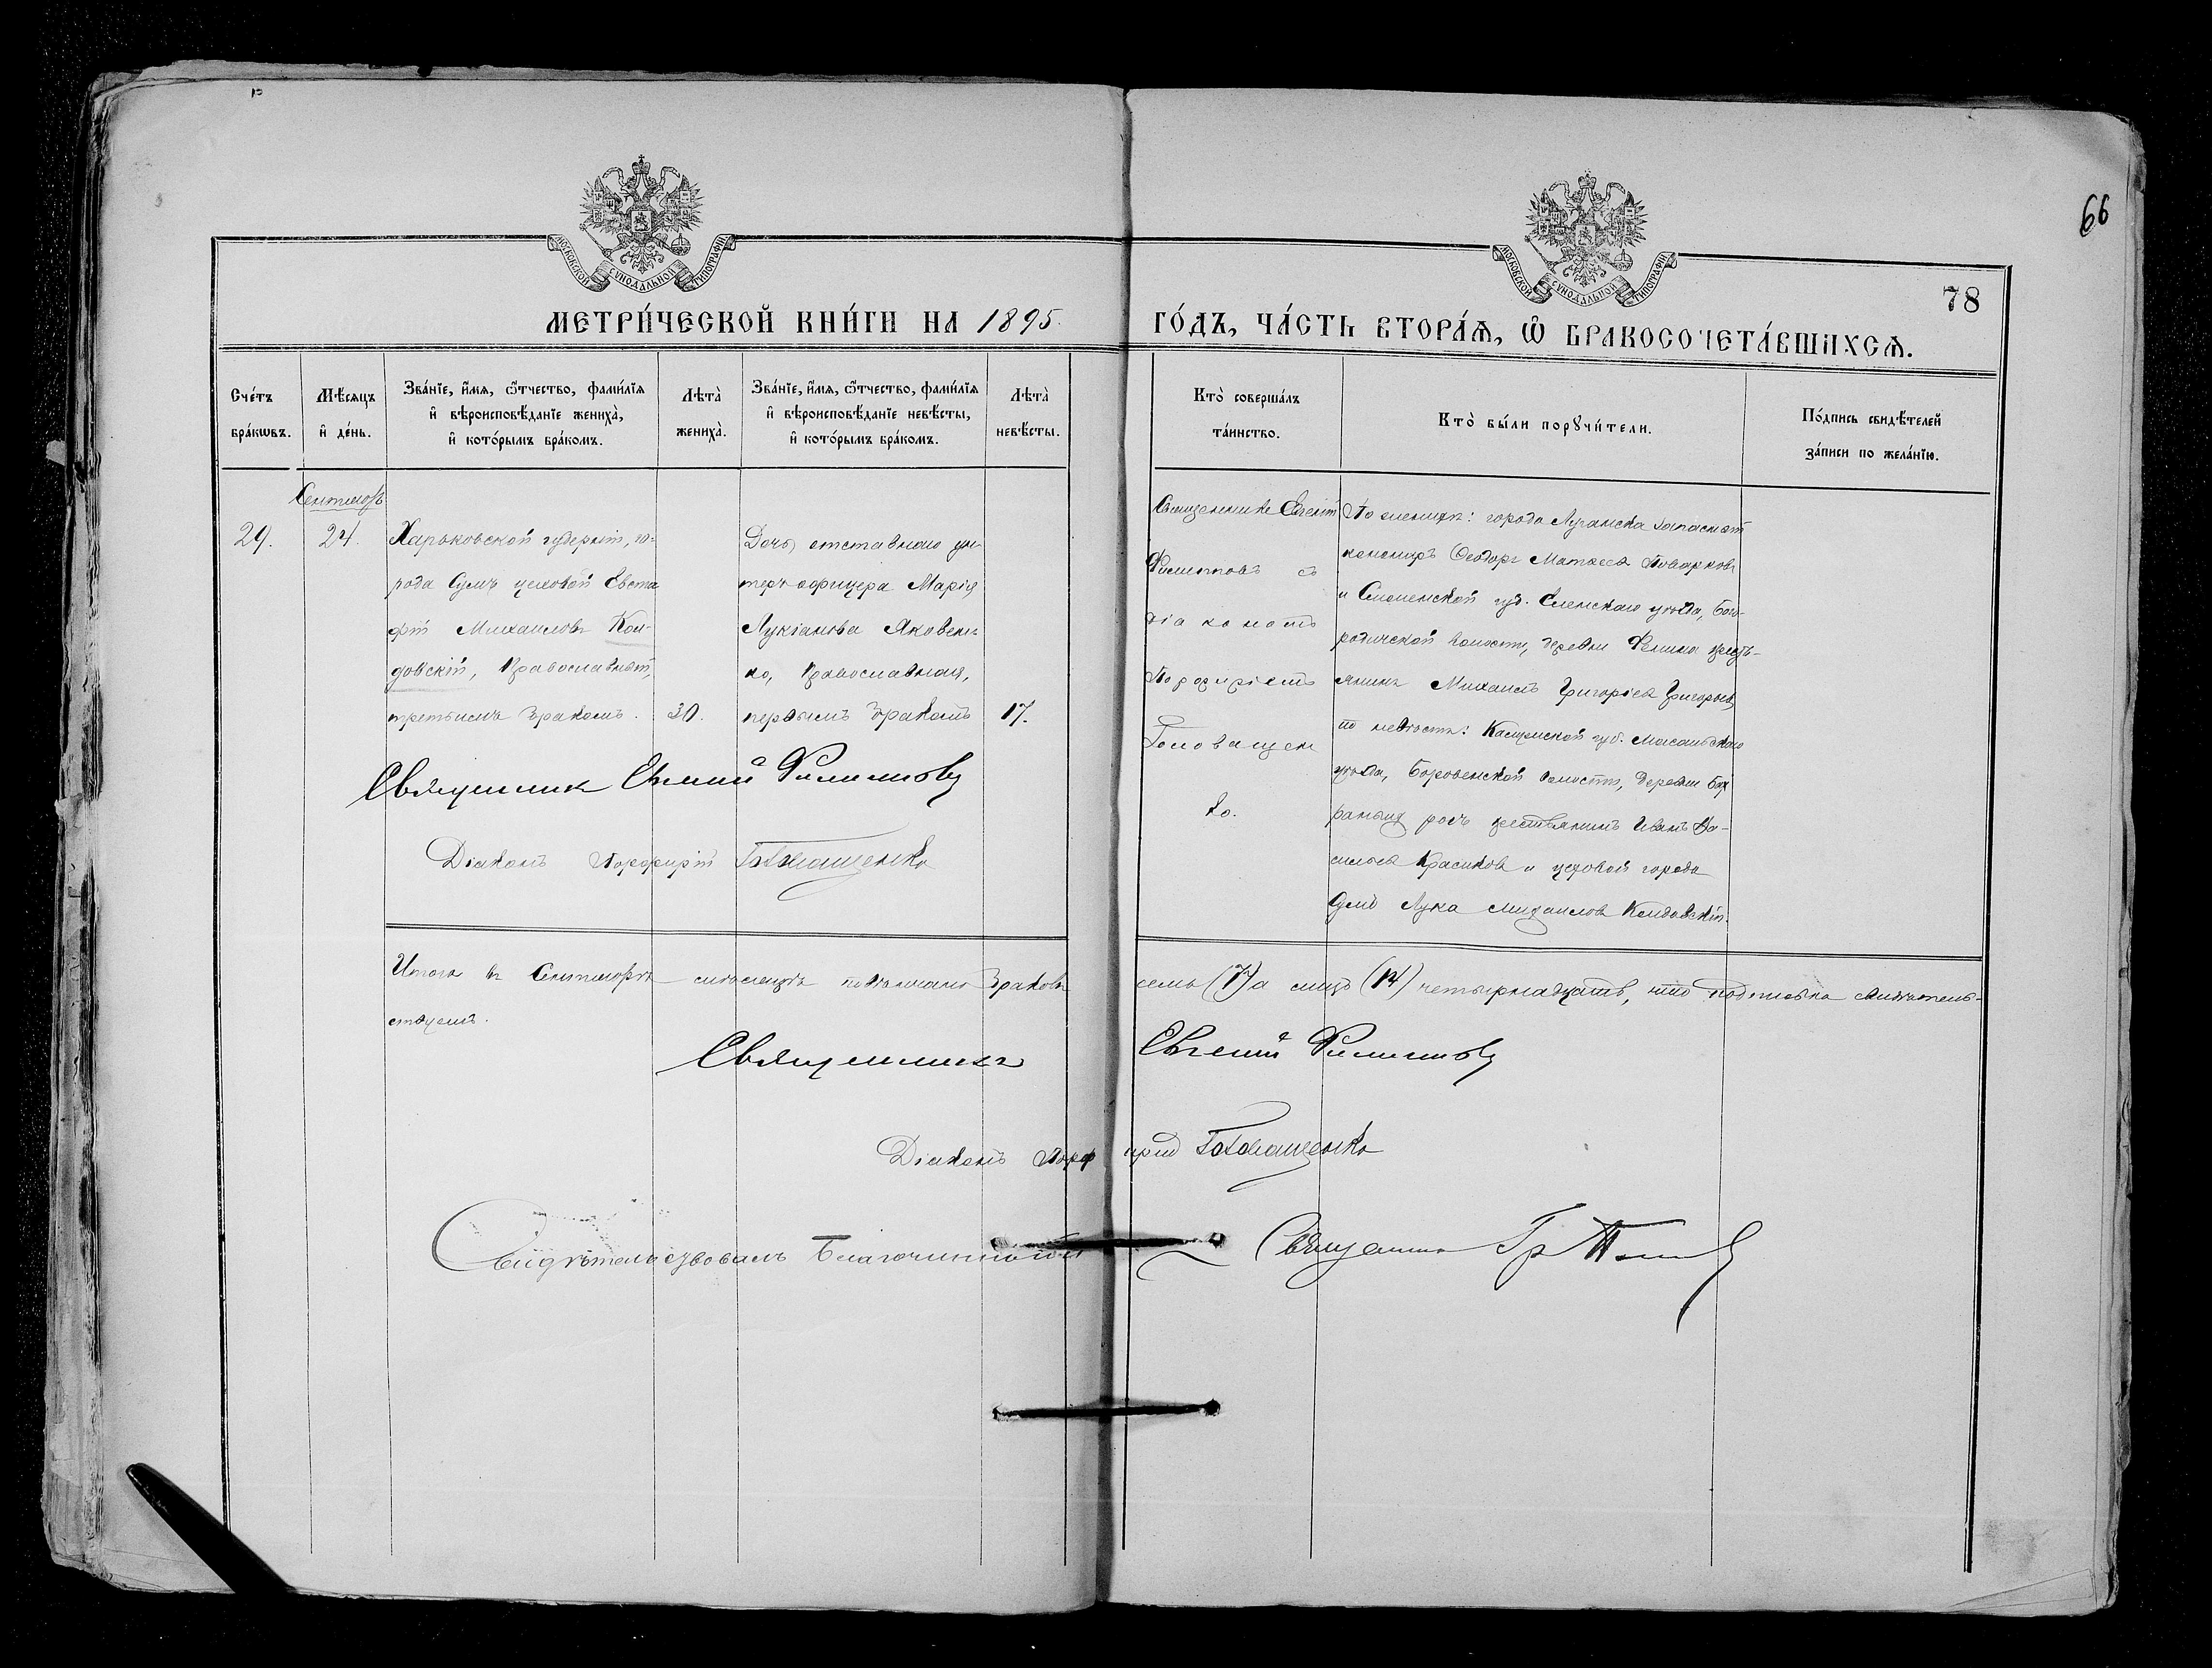 66
78
МОСКОВСКОЙ СѴНОДАЛЬНОЙ ТИПОГРАФІИ
МОСКОВСКОЙ СѴНОДАЛЬНОЙ ТИПОГРАФІИ
МЕТРИ́ЧЕСКОЙ КНИ́ГИ НА 1895.
ГО́ДЪ, ЧА́СТЬ ВТОРА́Ѧ, Ѡ҆ БРАКОСОЧЕТА́ВШИХСѦ.
Сче́тъ
бра́кѡвъ.
Мѣ́сяцъ
и҆ де́нь.
Зва́нїе, и҆́мя, ѻ҆́тчество, фами́лїя
и҆ вѣроисповѣ́данїе жениха̀,
и҆ кото́рымъ бра́комъ.
Лѣта̀
жениха̀.
Зва́нїе, и҆́мя, ѻ҆́тчество, фами́лїя
и҆ вѣроисповѣ́данїе невѣ́сты,
и҆ кото́рымъ бра́комъ.
Лѣта̀
невѣ́сты.
Кто̀ соверша́лъ
та́инство.
Кто̀ бы́ли порꙋчи́тели.
По́дпись свидѣ́телей
за́писи по жела́нїю.
Сентябрь
29.
24.
Харьковской губерніи, го-
рода Сумъ цеховой Евста
фій Михаиловъ Кол-
довскій, Православный,
третьимъ бракомъ.
30.
Дочь отставного ун-
теръ-офицера Марія
Лукіанова Яковен-
ко, Православная,
первымъ бракомъ
17.
Священникъ Евгеній
Филипповъ съ
діакономъ
Порфиріемъ
Головащен
ко.
По женихѣ: города Луганска запасной
Ѳеодоръ Матвеевъ
и Смоленской губ. уѣзда, Бого-
родичской волости, деревни крестъ-
янинъ Михаилъ Григорьевъ Григорьевъ,
по невѣстѣ: Калужской губ. Мосальскаго
уѣзда, волости, деревни
крестьянинъ Иванъ Ва-
сильевъ Красиковъ и цеховой города
Сумъ Лука Михаиловъ Колдовскій.
Священникъ Евгеній Филипповъ
Діаконъ Порфирій Головащенко
Итого въ Сентябрѣ мѣсяцѣ повѣнчано браковъ семь (7) а лицъ (14) четырнадцать, что подписью свидѣтель-
ствуемъ.
Священникъ Евгеній Филипповъ
Діаконъ Порфирій Головащенко
Свидѣтельствовалъ Благочинный Священникъ Гр